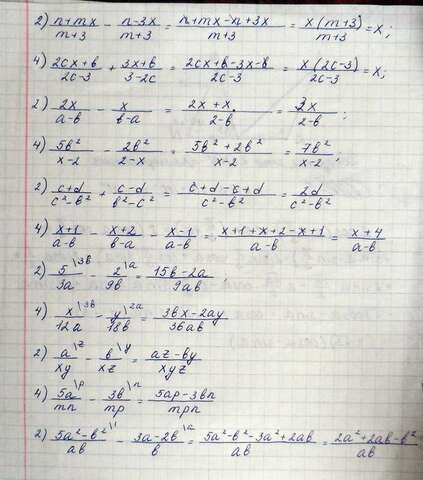 2) (n+mx)/(m+3) - (n-3x)/(m+3) = (n+mx-n+3x)/(m+3) = x(m+3)/(m+3) = x;
4) (2cx+b)/(2c-3) + (3x+b)/(3-2c) = (2cx+b-3x-b)/(2c-3) = x(2c-3)/(2c-3) = x;
2) 2x/(a-b) - x/(b-a) = (2x+x)/(a-b) = 3x/(a-b);
4) 5b²/(x-2) - 2b²/(2-x) = (5b²+2b²)/(x-2) = 7b²/(x-2);
2) (c+d)/(c²-b²) + (c-d)/(b²-c²) = (c+d-c+d)/(c²-b²) = 2d/(c²-b²)
4) (x+1)/(a-b) - (x+2)/(b-a) - (x-1)/(a-b) = (x+1+x+2-x+1)/(a-b) = (x+4)/(a-b)
2) 5\3b/3a - 2\a/9b = (15b-2a)/9ab;
4) x\3b/12a - y\2a/18b = (3bx-2ay)/36ab
2) a\z/xy - b\y/xz = (az-by)/xyz
4) 5a\p/mn - 3b\n/mp = (5ap-3bn)/mpn
2) (5a²-b²)\1/ab - (3a-2b)\a/b = (5a²-b²-3a²+2ab)/ab = (2a²+2ab-b²)/ab